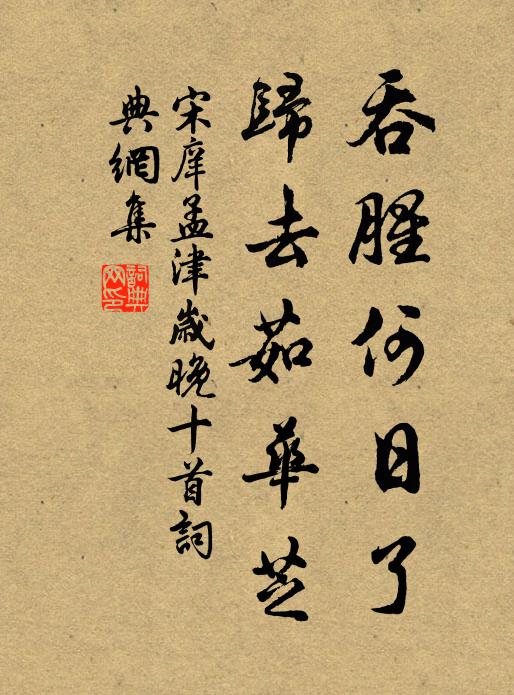 吞腥何日了
歸去茹華芝
宋庠孟津歲晚十首詞
典網集
詞典网印